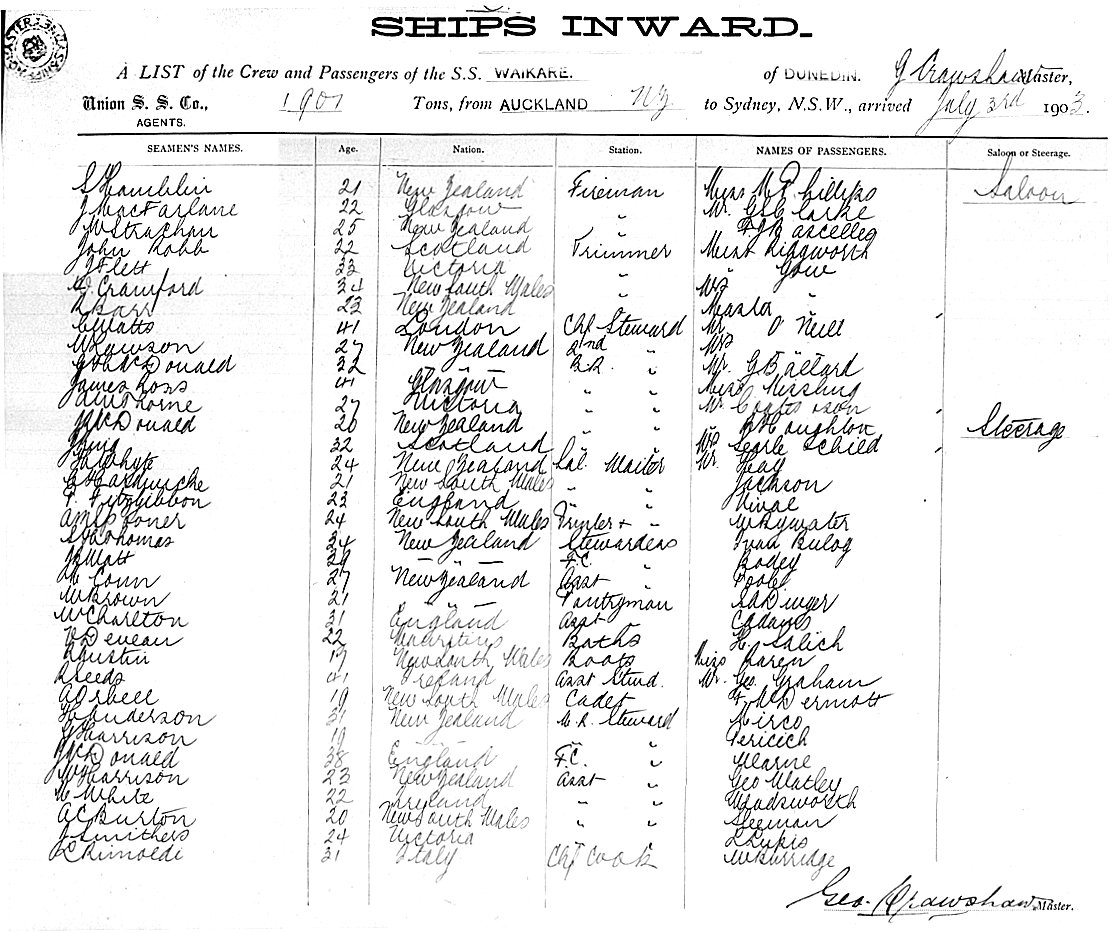 SHIPS INWARD.
A LIST of the Crew and Passengers of the S.S. WAIKARE. of DUNEDIN. G Crawshaw Master,
Union S. S. Co., 1901 Tons, from AUCKLAND NZ to Sydney, N.S.W., arrived July 3rd 1903.
AGENTS.
SEAMEN'S NAMES. Age. Nation. Station. NAMES OF PASSENGERS. Saloon or Steerage.
S Hamblin 21 New Zealand Fireman Miss M Phillips Saloon
J MacFarlane 22 Glasgow " Mr. G S Clarke
W Strachan 25 New Zealand "
John Robb 22 Scotland Trimmer Miss Ridgworth
J Flett 33 Victoria " " Gow
Crawford 34 New South Wales " Mrs "
D Barr 23 New Zealand Master "
C Watts 41 London Chf Steward Mr O'Neill
W Lawson 27 New Zealand 2nd " Mrs "
G McDonald 32 " B.R. " Mr. G Ballard
James Ross 41 Glasgow " " Miss Kissling
Thorne 27 Victoria " " Mr.
J McDonald 20 New Zealand " " Houghton Steerage
J King 32 Scotland " " Mrs Searle & child
J Whyte 24 New Zealand Sal. Waiter Mr Hay
21 New South Wales " " Jackson
F. Fitzgibbon 23 England " "
24 New South Wales Printer & " W Bywater
S Thomas 34 New Zealand Stewardess Ivan Bulog
J B Watt 29 " F.C. " Bodey
M Conn 27 New Zealand Asst " Poole
W Brown 21 " Pantryman
W Charlton 31 England Asst " C Adams
V Deveau 22 Mauritius Baths H Salich
Austin 17 New South Wales Boots Miss Karen
R Leeds 41 Ireland Asst Stwd. Mr. Geo. Graham
A Orbell 19 New South Wales Cadet F McDermott
H Anderson 31 New Zealand M.R. Steward
J Harrison 19 " " " Pericich
J McDonald 38 England F.C. " Mearne
W Harrison 23 New Zealand Asst " Geo Watley
W White 22 Ireland " " Wadsworth
A C Burton 20 New South Wales " " Seeman
J Smithers 24 Victoria " " L Lukis
C Rinoldi 31 Italy Chf Cook W Burridge
Geo. Crawshaw Master.